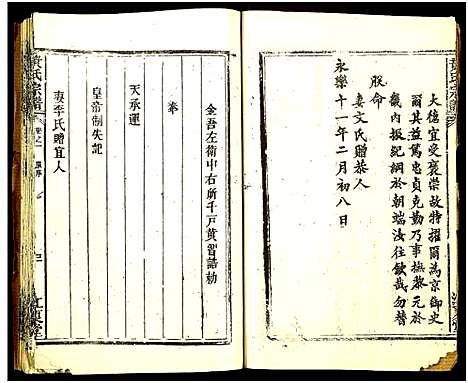 大德宜受褒崇故特擢爾為京御史
爾其益篤忠貞克勤乃事撫黎元於
畿內振紀綱於朝端汝往欽哉勿替
朕命
妻文氏贈恭人
永樂十一年二月初八日
黃氏宗譜
金吾左衛中右所千戶黃習誥勅
奉
天承運
皇帝制失記
妻李氏贈宜人
黃氏宗譜
卷之一